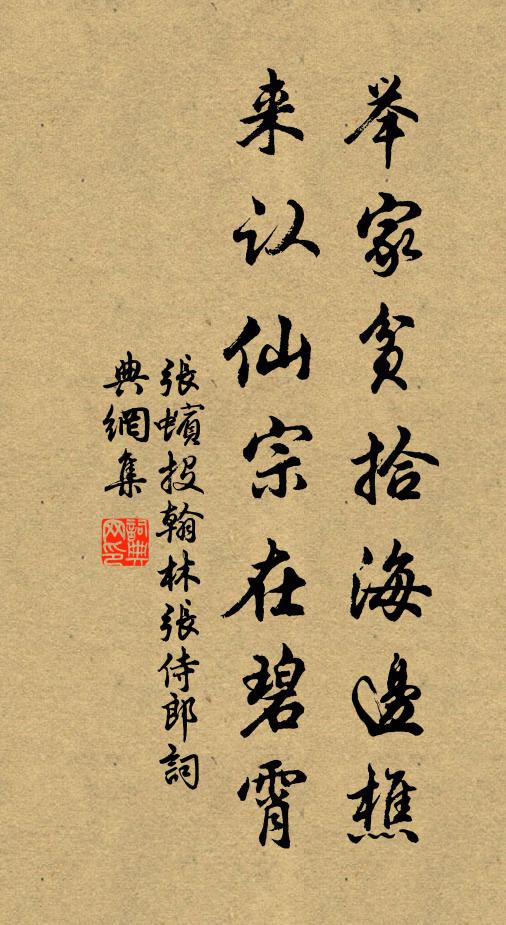 举家贫拾海邊樵
来认仙宗在碧霄
張蠙投翰林張侍郎詞
典網集
詞典网印